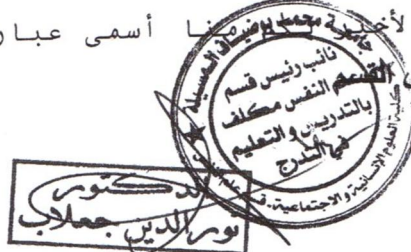 منا أسمى عبار
جامعة محمد بوضياف المسيلة
نائب رئيس قسم
النفس مكلف
بالتدريس والتعليم
في التدرج
كلية العلوم الإنسانية والاجتماعية
الدكتور
نور الدين جعلاب